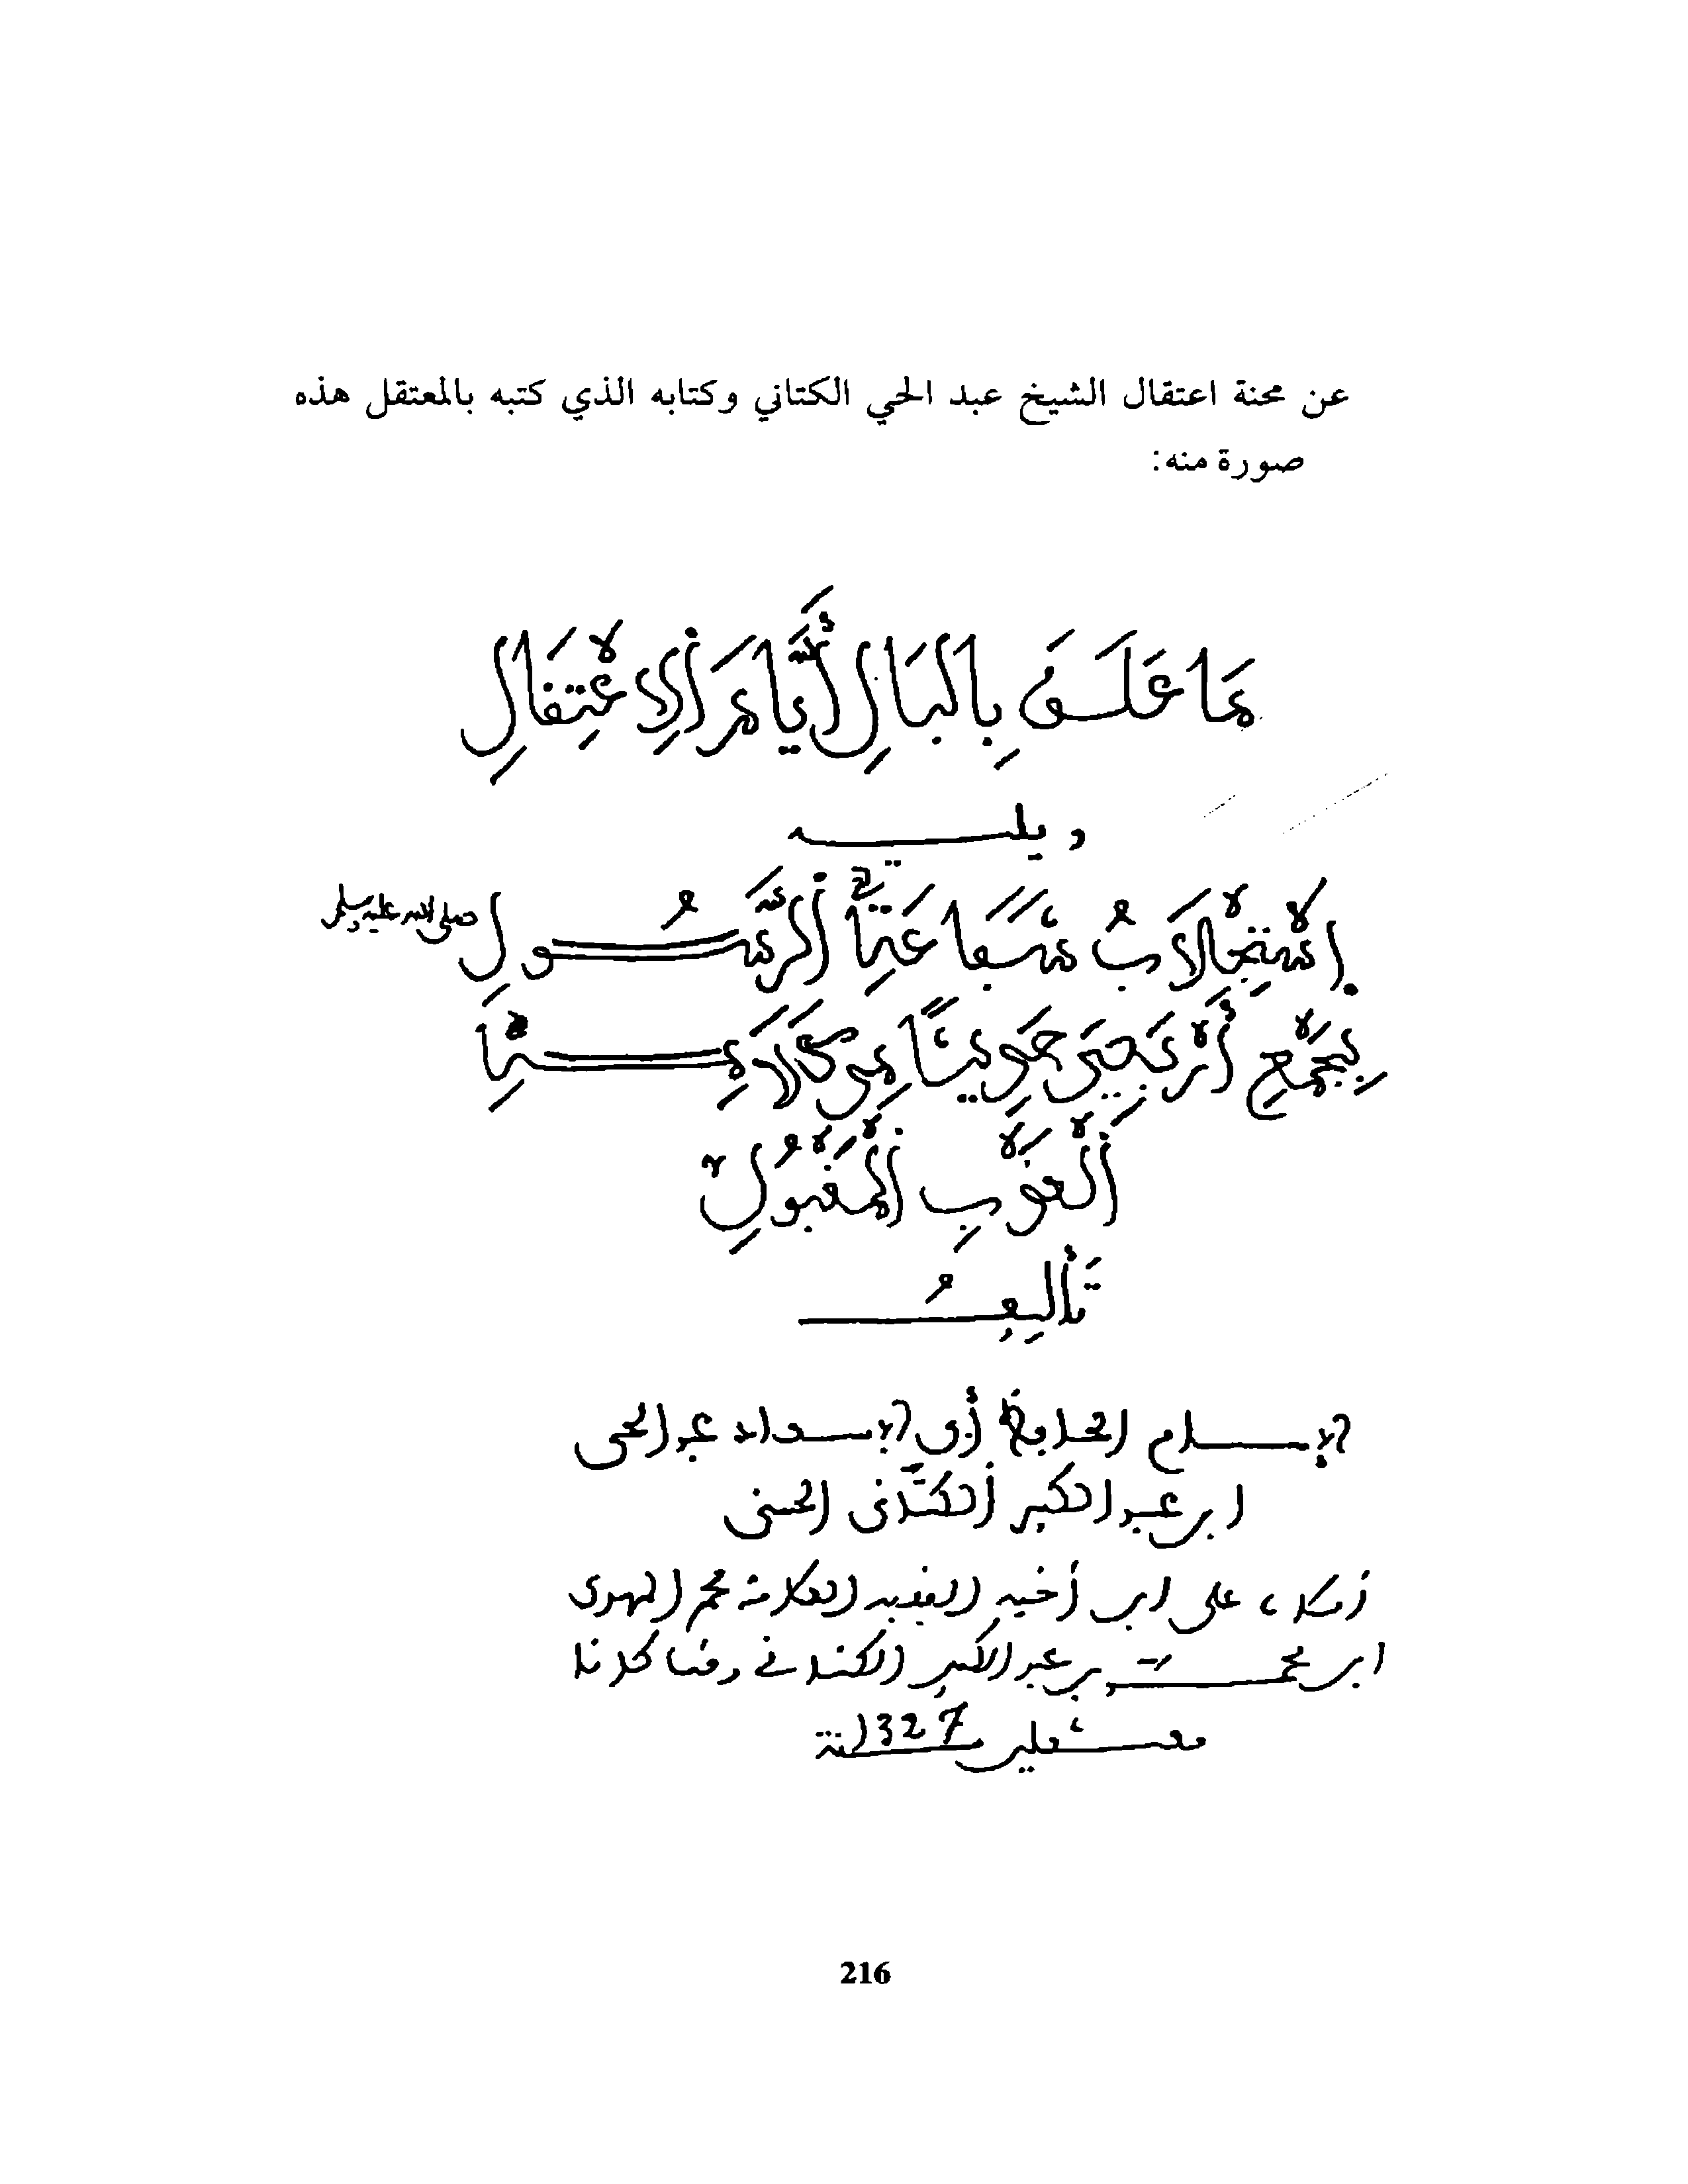 عن محنة اعتقال الشيخ عبد الحي الكتاني وكتابه الذي كتبه بالمعتقل هذه
صورة منه:
مَا عَلَـقَ بِالبَالِ أَيَّامَ اَلِاعْتِقَالِ
ويليـــه
اِسْتِجْلَابُ شَفَاعَةِ اَلرَّسُـولِ صلى الله عليه وسلم
بِجَمْعِ أَرْبَعِينَ حَدِيثًا مِن كَلَامِـــهِ
اَلْعَذْبِ اَلْمَقْبُولِ
تَأْلِيفُ
الإمـام الحافظ أبي الإسعاد عبد الحي
ابن عبد الكبير الكتاني الحسني
أملاه على ابن أخيه الفقيه العلامة محمد المهدي
ابن محمد بن عبد الكبير الكتاني وقتما كانا
معتقلين 1327سنة
216